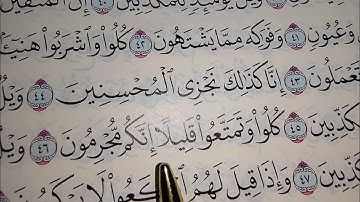 ٤٠ وَيْلٌ يَوْمَئِذٍ لِّلْمُكَذِّبِينَ إِنَّ الْمُتَّقِينَ
وَعُيُونٍ ٤١ وَفَوَٰكِهَ مِمَّا يَشْتَهُونَ ٤٢ كُلُوا۟ وَاشْرَبُوا۟ هَنِيٓـًٔا
تَعْمَلُونَ ٤٣ إِنَّا كَذَٰلِكَ نَجْزِى الْمُحْسِنِينَ ٤٤ وَيْلٌ
كَذِّبِينَ ٤٥ كُلُوا۟ وَتَمَتَّعُوا۟ قَلِيلًا إِنَّكُم مُّجْرِمُونَ ٤٦ وَيْلٌ
كَذِّبِينَ ٤٧ وَإِذَا قِيلَ لَهُمُ ارْكَعُوا۟ لَا يَرْكَعُونَ